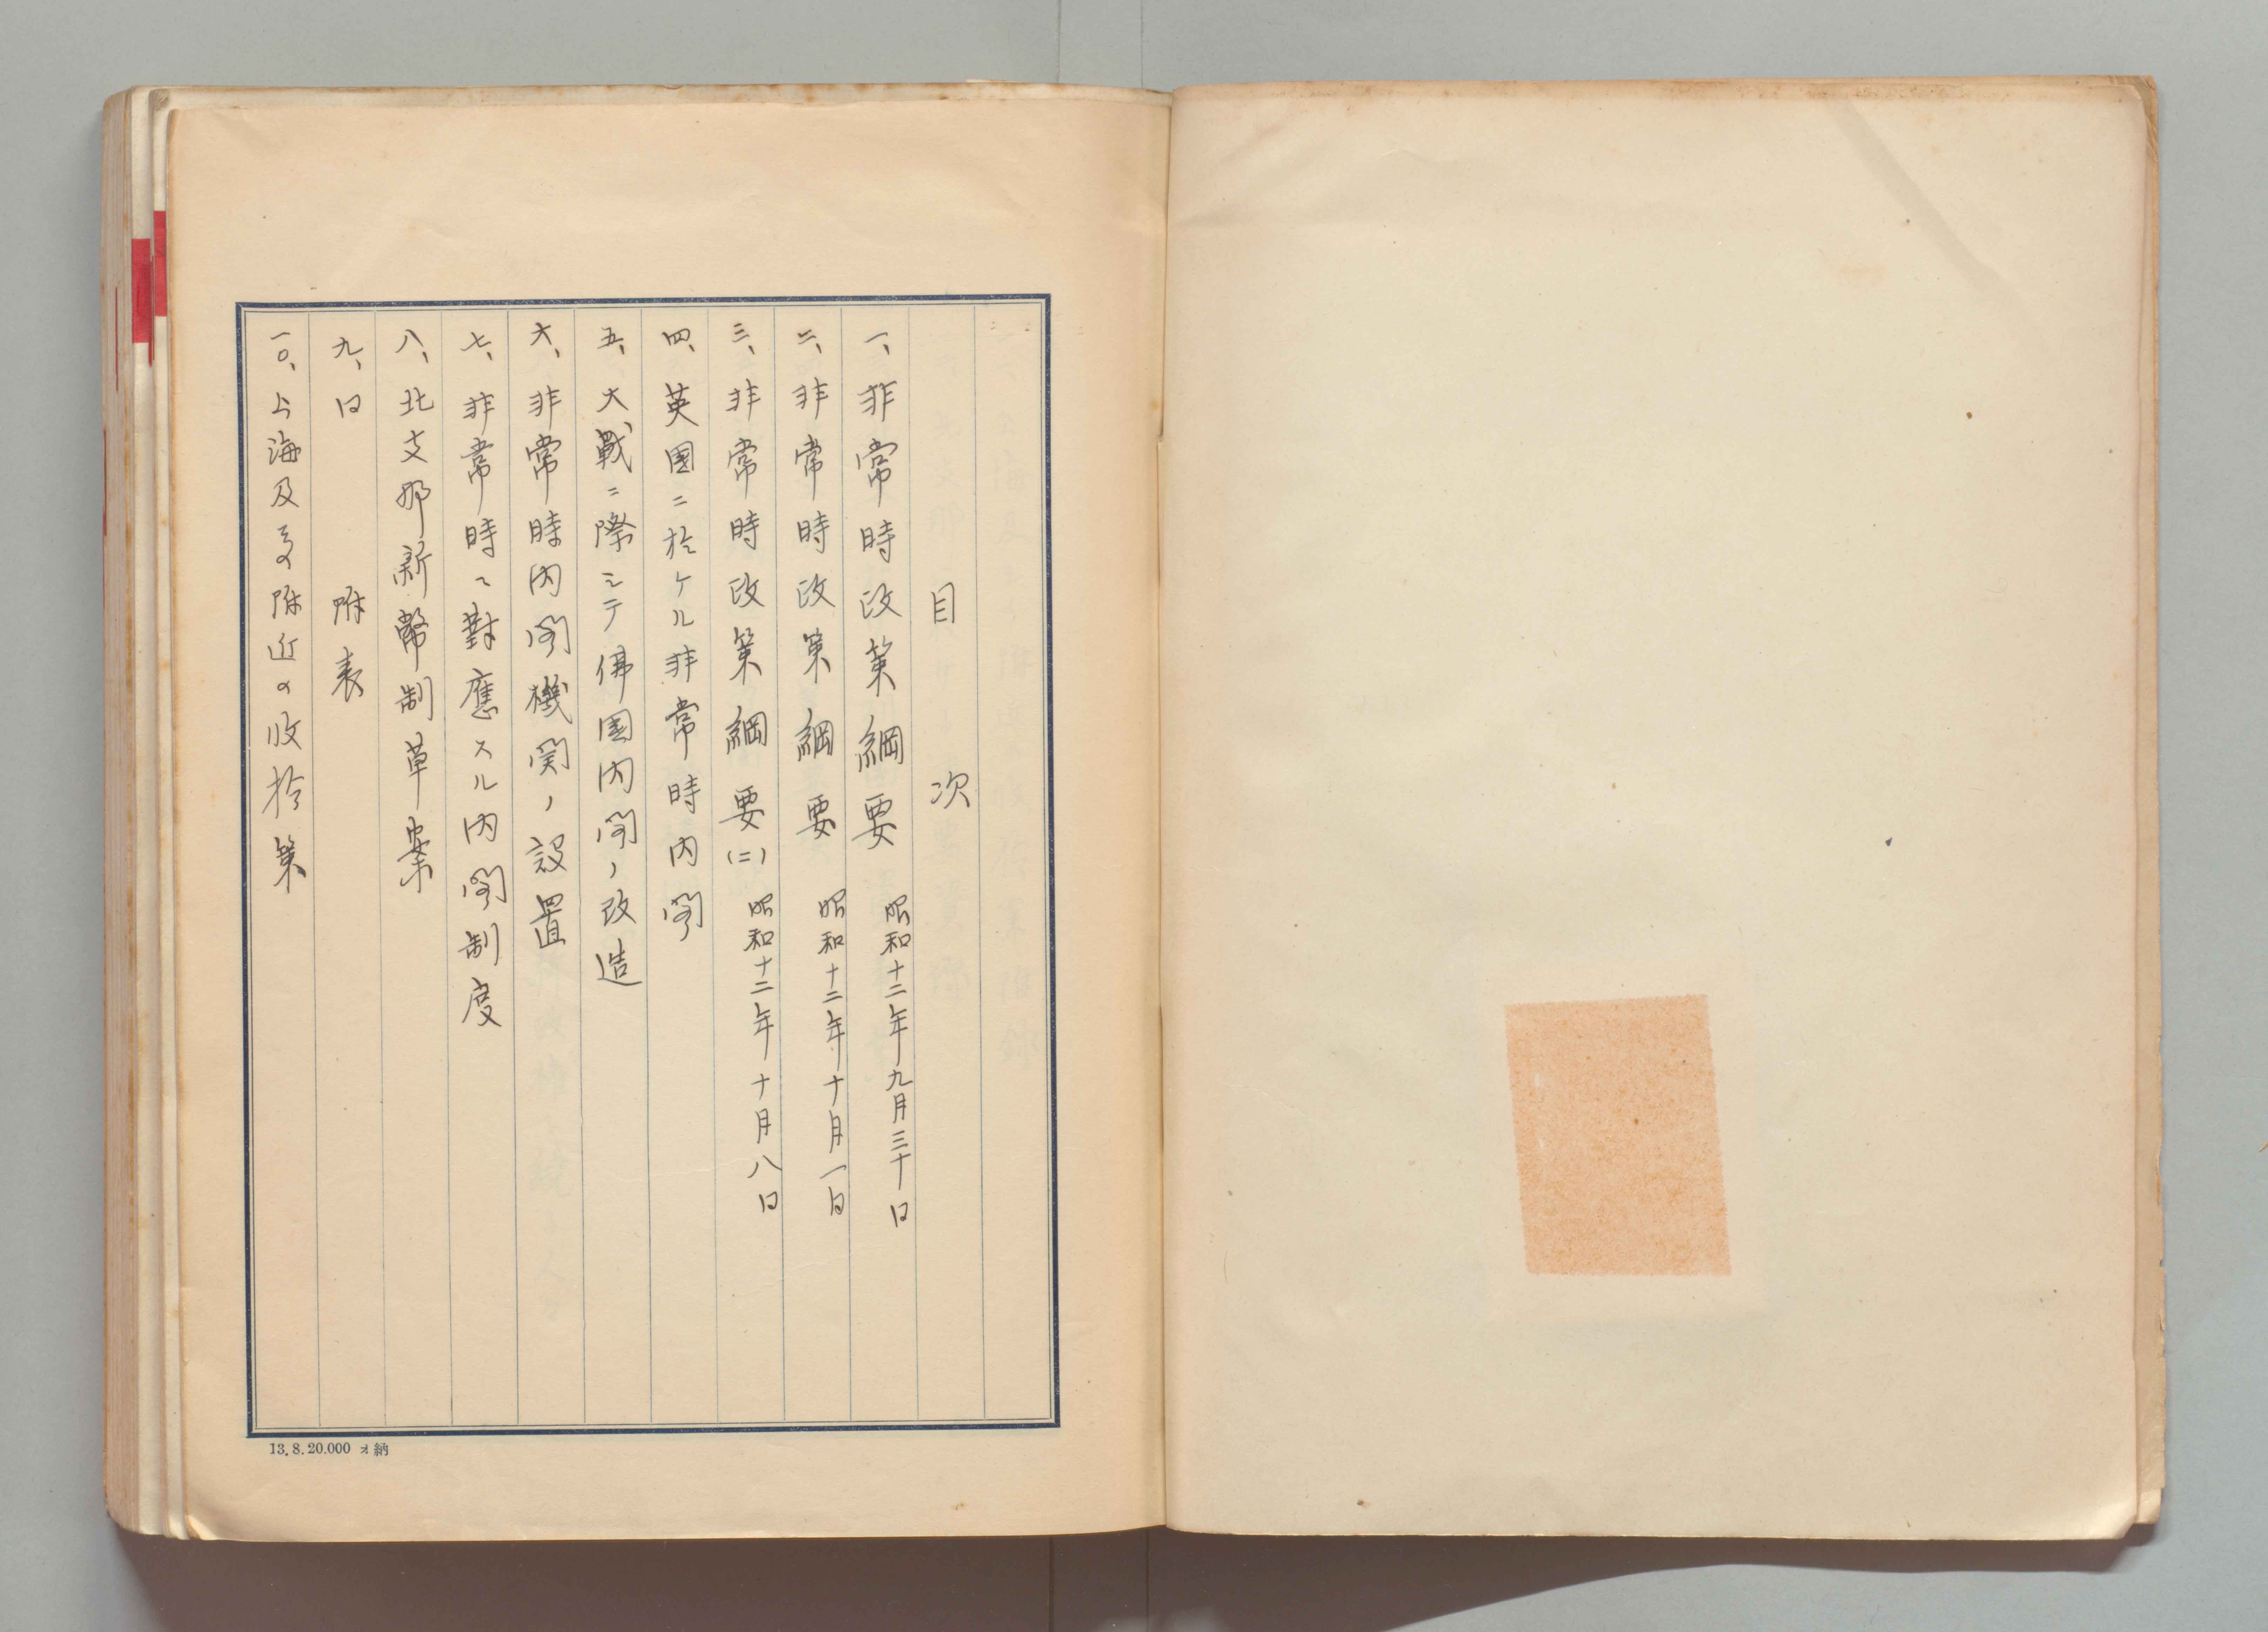 目次
一、非常時政策綱要 昭和十二年九月三十日
二、非常時政策綱要 昭和十二年十月一日
三、非常時政策綱要(二) 昭和十二年十月八日
四、英国ニ於ケル非常時内閣
五、大戰ニ際シテ佛国内閣ノ改造
六、非常時内閣機関ノ設置
七、非常時ニ對應スル内閣制度
八、北支那新幣制草案
九、日 附表
一〇、上海及其附近の收拾策
13.8.20.000 オ納